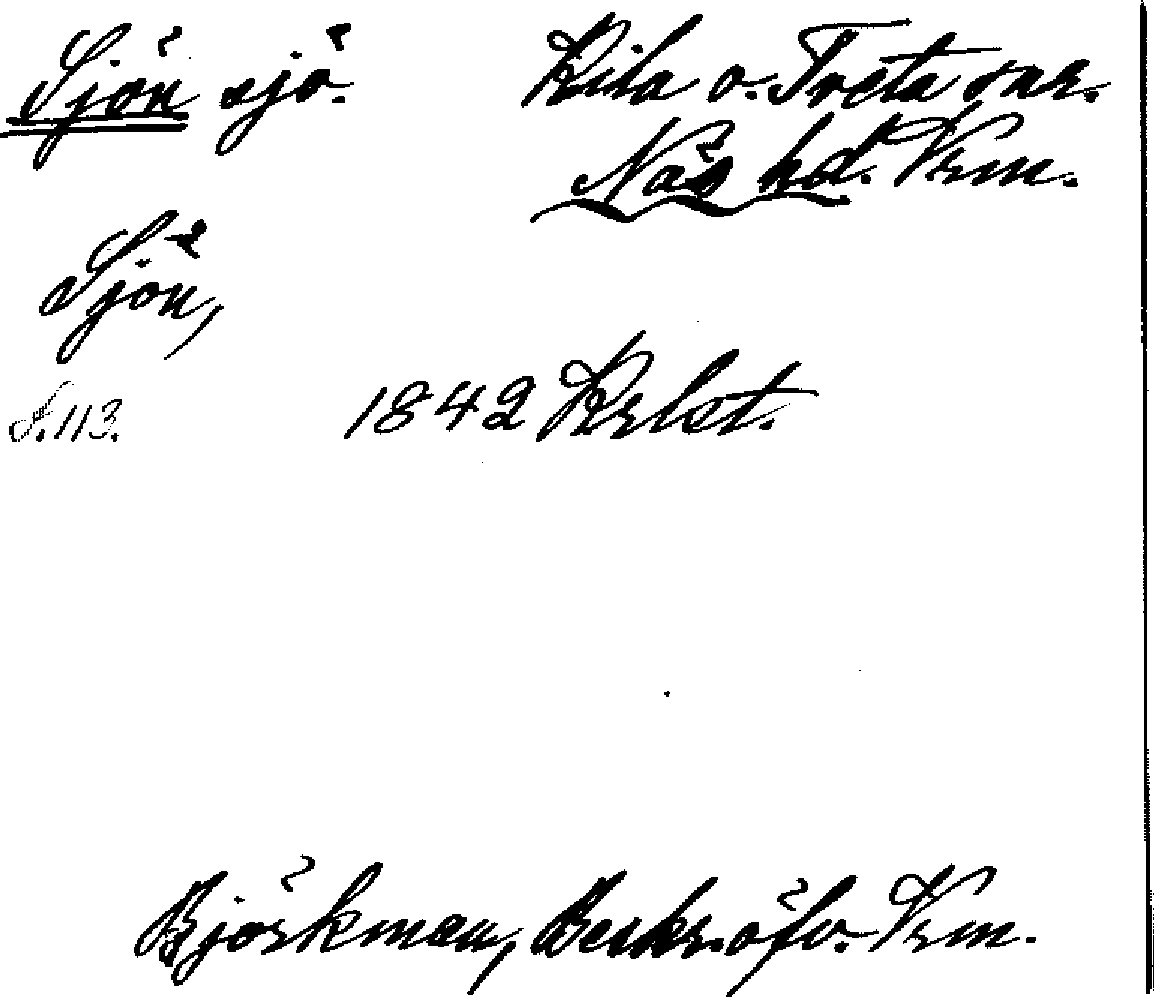 Sjön sjö. Kila o. Tveta snr.
Näs hd. Vrm.
Sjön,
S. 113. 1842 Krlst.
Björkman, Beskr. öfv. Vrm.